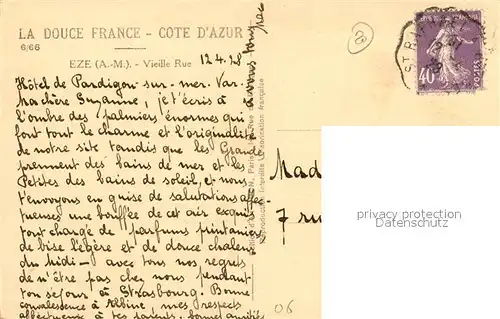 LA DOUCE FRANCE - COTE D'AZUR
6/66
EZE (A.-M.). - Vieille Rue
12.4.28
Hôtel de Pardigon-sur-mer. Var.
Ma chère Suzanne, je t'écris à
l'ombre des palmiers énormes qui
font tout le charme et l'originalité
de notre site tandis que les Grands
prennent des bains de mer et les
Petites des bains de soleil, et nous
t'envoyons en guise de salutations affec-
tueuses une bouffée de cet air exquis
tout chargé de parfums printaniers
de bise légère et de douce chaleur
du Midi - avec tous nos regrets
de n'être pas chez nous pendant
ton séjour à Strasbourg. Bonne
convalescence à Albine, mes respects
affectueux à tes parents. bonnes amitiés
à vous tous
Reproduction interdite
française
2
ST R
40
POSTES
Mad
7 ru
privacy protection
Datenschutz
06